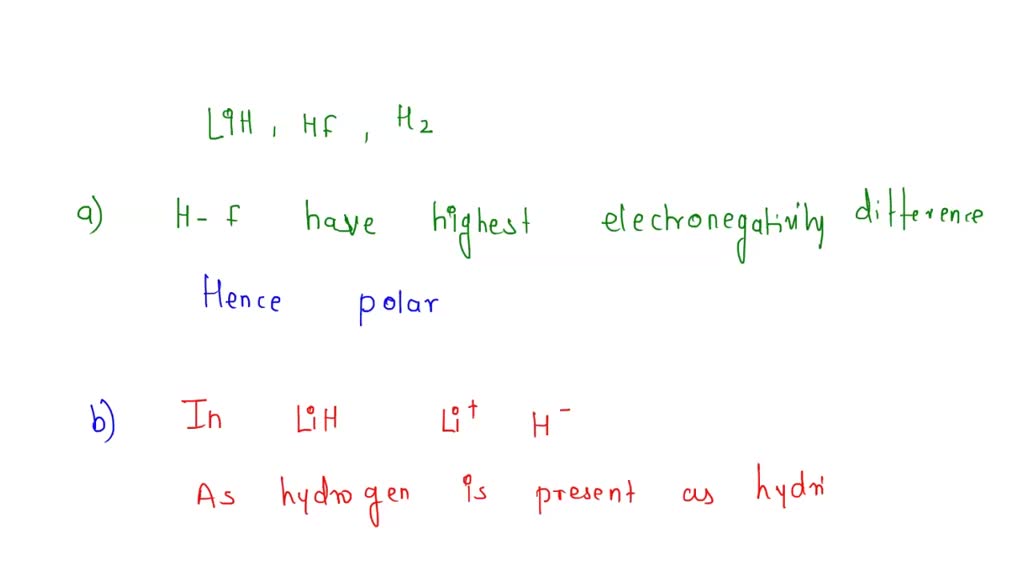 LiH, Hf, H2
a) H-f have highest electronegativity difference
Hence polar
b) In LiH Li+ H-
As hydrogen is present as hydri